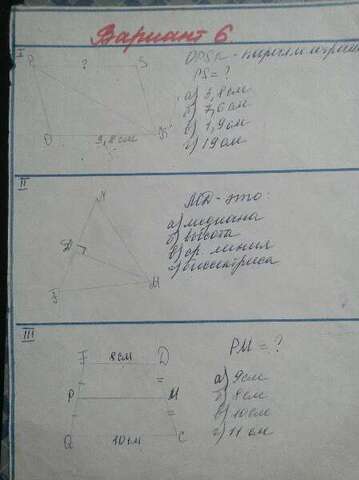 Вариант 6
I
P ? S
O
3,8 см K
OPSK - параллелограм
PS = ?
а) 3,8 см
б) 7,6 см
в) 1,9 см
г) 19 см
II
N
D
S M
MD - это:
а) медиана
б) высота
в) ср. линия
г) биссектриса
III
F 8 см D
P M
Q 10 см C
PM = ?
а) 9 см
б) 8 см
в) 10 см
г) 11 см